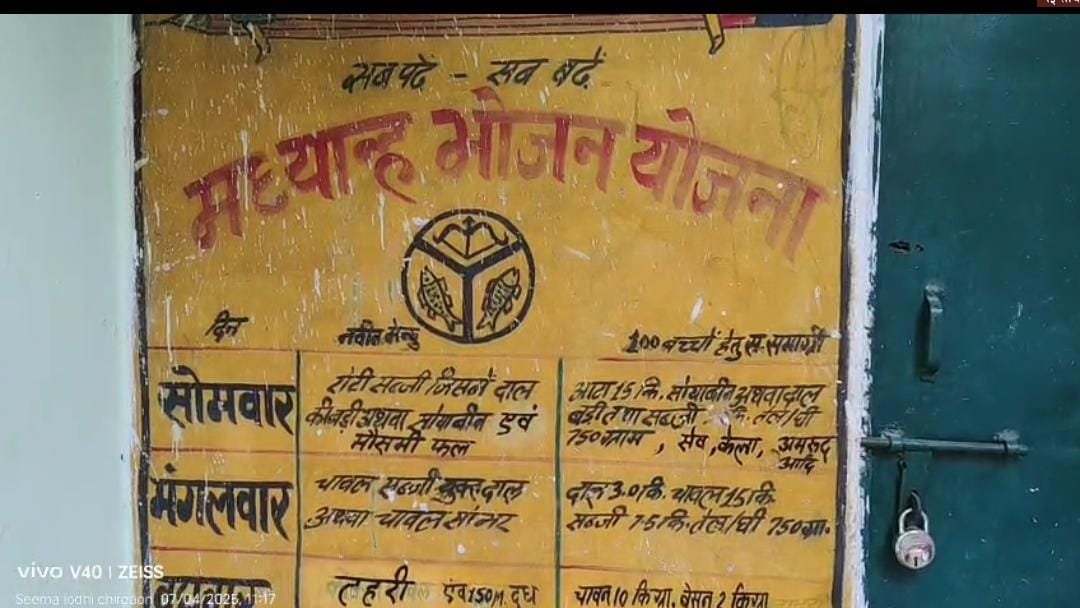 सब पढें - सब बढें
मध्यान्ह भोजन योजना
दिन
नवीन मेन्यु
100 बच्चों हेतु स. समाग्री
सोमवार
रोटी सब्जी जिसमें दाल
की बड़ी अथवा सोयाबीन एवं
मौसमी फल
आटा 15 कि. सोयाबीन अथवा दाल
बड़ी तथा सब्जी कि. तेल/घी
750 ग्राम, सेव, केला, अमरुद
आदि
मंगलवार
चावल सब्जी युक्त दाल
अथवा चावल सांभर
दाल 3.0 कि. चावल 15 कि
सब्जी 7.5 कि. तेल/घी 750 ग्रा.
तहरी एवं 150 M. दूध
चावल 10 किग्रा, बेसन 2 किग्रा
vivo V40 | ZEISS
Seema lodhi chirgaon 07/04/2025, 11:17